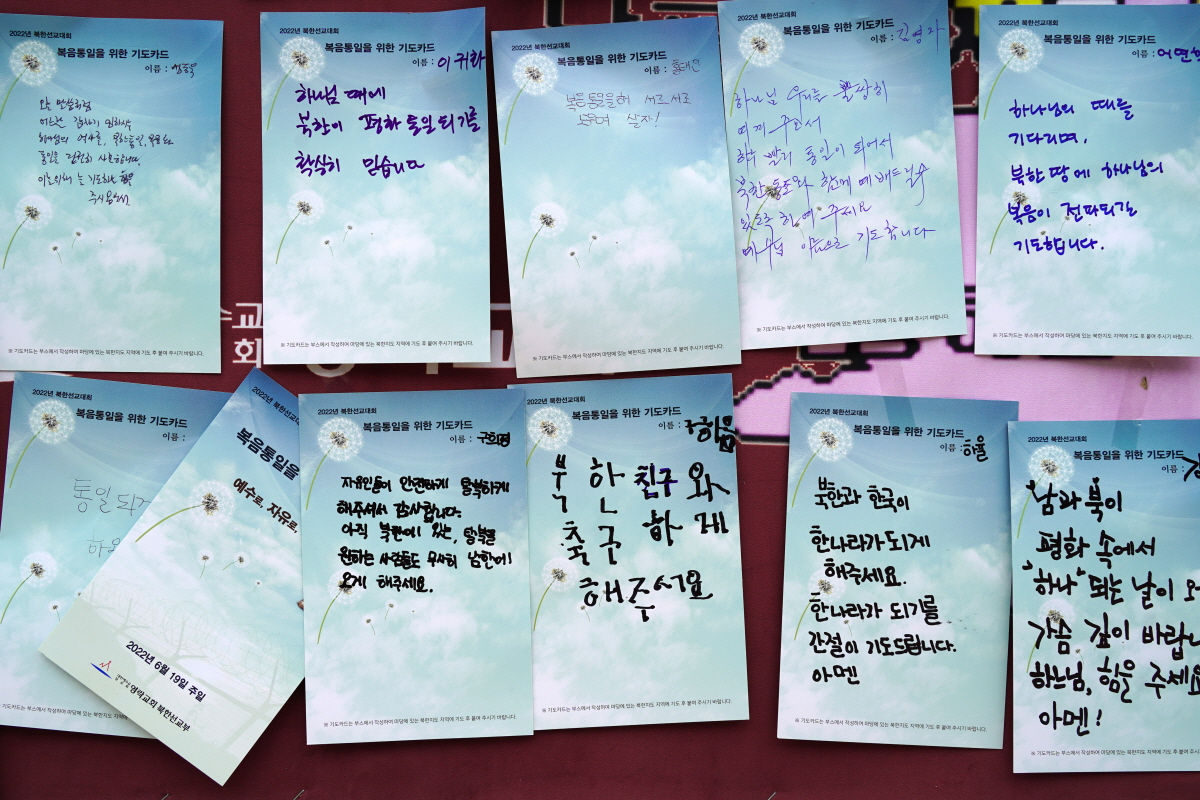 2022년 북한선교대회
복음통일을 위한 기도카드
이름 :
오늘 말씀처럼
통일을 간절히 사모합니다.
주시옵소서
※ 기도카드는 부스에서 작성하여 마당에 있는 북한지도 지역에 기도 후 붙여 주시기 바랍니다.
2022년 북한선교대회
복음통일을 위한 기도카드
이름 : 이귀화
하나님 때에
북한이 평화 통일 되기를
확실히 믿습니다
※ 기도카드는 부스에서 작성하여 마당에 있는 북한지도 지역에 기도 후 붙여 주시기 바랍니다.
2022년 북한선교대회
복음통일을 위한 기도카드
이름 : 홍대선
복음통일을위해 서로서로
도우며 살자!
※ 기도카드는 부스에서 작성하여 마당에 있는 북한지도 지역에 기도 후 붙여 주시기 바랍니다.
2022년 북한선교대회
복음통일을 위한 기도카드
이름 : 김영자
하나님 우리를 불쌍히
여겨 주소서
빨리 통일이 되어서
북한 동포와 함께 예배드릴수
있도록 하여 주세요
예수님 이름으로 기도합니다
※ 기도카드는 부스에서 작성하여 마당에 있는 북한지도 지역에 기도 후 붙여 주시기 바랍니다.
2022년 북한선교대회
복음통일을 위한 기도카드
이름 :
하나님의 때를
기다리며,
북한 땅에 하나님의
복음이 전파되길
기도합니다.
※ 기도카드는 부스에서 작성하여 마당에 있는 북한지도 지역에 기도 후 붙여 주시기 바랍니다.
수교
회
2022년 북한선교대회
복음통일을 위한 기도카드
이름 :
통일 되게
기도카드는 부스에서 작성하여 마당에 있는 북한지도 지역에
2022년 북한선교대회
복음통일을
예수로, 자유로,
2022년 6월 19일 주일
영락교회 북한선교부
2022년 북한선교대회
복음통일을 위한 기도카드
이름 : 구희영
자유인들이 안전하게 탈북하게
해주셔서 감사합니다.
아직 북한에 있는, 탈북을
원하는 사람들도 무사히 남한에
오게 해주세요.
※ 기도카드는 부스에서 작성하여 마당에 있는 북한지도 지역에 기도 후 붙여 주시기 바랍니다.
2022년 북한선교대회
복음통일을 위한 기도카드
이름 : 하음
북한 친구와
축구 하게
해주서요
※ 기도카드는 부스에서 작성하여 마당에 있는 북한지도 지역에 기도 후 붙여 주시기 바랍니다.
2022년 북한선교대회
복음통일을 위한 기도카드
이름 : 하율
북한과 한국이
한나라가 되게
해주세요.
한나라가 되기를
간절이 기도드립니다.
아멘
※ 기도카드는 부스에서 작성하여 마당에 있는 북한지도 지역에 기도 후 붙여 주시기 바랍니다.
2022년 북한선교대회
복음통일을 위한 기도카드
이름 :
남과 북이
평화 속에서
"하나" 되는 날이
가슴 깊이 바랍니
하느님, 힘을 주세요
아멘!
※ 기도카드는 부스에서 작성하여 마당에 있는 북한지도 지역에 기도 후 붙여 주시기 바랍